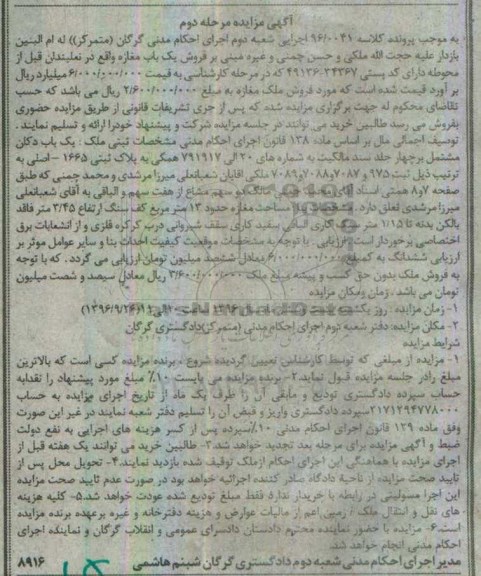 آگهی مزایده مرحله دوم
به موجب پرونده کلاسه ۹۶/۰۰۴۱ اجرایی شعبه دوم اجرای احکام مدنی گرگان (متمرکز)) له ام البنین
بازدار علیه حجت الله ملکی و حسن چمنی و غیره مبنی بر فروش یک باب مغازه واقع در نعلبندان قبل از
محوطه دارای کد پستی ۳۴۳۶۷-۴۹۱۳۶ که در مرحله کارشناسی به قیمت ۶/۰۰۰/۰۰۰/۰۰۰ میلیارد ریال
بر آورد قیمت شده است که مورد فروش ملک مغازه به مبلغ ۲/۶۰۰/۰۰۰/۰۰۰ ریال می باشد که حسب
تقاضای محکوم له جهت برگزاری مزایده شده که پس از جری تشریفات قانونی از طریق مزایده حضوری
بفروش می رسد طالبین خرید می توانند در جلسه مزایده شرکت و پیشنهاد خودرا ارائه و تسلیم نمایند .
توصیف اجمالی مال بر اساس ماده ۱۳۸ قانون اجرای احکام مدنی مشخصات ثبتی ملک : یک باب دکان
مشتمل برچهار جلد سند مالکیت به شماره های ۲۰ الی ۷۹۱۹۱۷ همگی به پلاک ثبتی ۱۶۶۵ - اصلی به
ترتیب ذیل ثبت ۹۷۵ و ۷۰۸۷و۷۰۸۸و۷۰۸۹ ملکی اقایان شعبانعلی میرزا مرشدی و محمد چمنی که طبق
صفحه ۷و۸ هستی اسناد سهم مشاع از هفت سهم و الباقی به آقای شعبانعلی
میرزا مرشدی تعلق دارد . مساحت مغازه حدود ۱۳ متر مربع کف سنگ ارتفاع ۳/۴۵ متر فاقد
بالکن بدنه تا ۱/۱۵ متر کاری الباقی سفید کاری سقف شیروانی درب کرکره فلزی و از انشعابات برق
اختصاصی برخوردار است ارزیابی . با توجه به مشخصات موقعیت کیفیت احداث بنا و سایر عوامل موثر بر
ارزیابی ششدانگ به کمبلغ ۶/۰۰۰/۰۰۰/۰۰۰ معادل ششصد میلیون تومان ارزیابی می گردد . که با توجه
به فروش ملک بدون حق کسب و پیشه مبلغ ملک ۳/۶۰۰/۰۰۰/۰۰۰ ریال معادل سیصد و شصت میلیون
تومان می باشد . زمان ومکان مزایده
۱- زمان مزایده : روز ۱۳۹۶ ساعت ۱۰ الی ۱۱ (۱۳۹۶/۹/۲۶)
۲- مکان مزایده: دفتر شعبه دوم اجرای احکام مدنی (متمرکز) دادگستری گرگان
شرایط مزایده
۱- مزایده از مبلغی که توسط کارشناس تعیین گردیده شروع ، برنده مزایده کسی است که بالاترین
مبلغ رادر جلسه مزایده قبول نماید.۲- برنده مزایده می بایست ۱۰٪ مبلغ مورد پیشنهاد را نقدابه
حساب سپرده دادگستری تودیع و مابقی آن را ظرف یک ماه از تاریخ اجرای مزایده به حساب
۲۱۷۱۲۹۴۷۷۸۰۰۰سپرده دادگستری واریز و قبض آن را تسلیم دفتر شعبه نمایند در غیر این صورت
وفق ماده ۱۲۹ قانون اجرای احکام مدنی ۱۰٪سپرده پس از کسر هزینه های اجرایی به نفع دولت
ضبط و آگهی مزایده برای مرحله بعد تجدید خواهد شد.۳- طالبین خرید می توانند یک هفته قبل از
اجرای مزایده با هماهنگی این اجرای احکام ازملک توقیف شده بازدید نمایند.۴- تحویل محل پس از
تایید صحت مزایده از ناحیه دادگاه صادر کننده اجرائیه خواهد بود در صورت عدم تایید صحت مزایده
این اجرا مسولیتی در رابطه با خریدار ندارد فقط مبلغ تودیع شده عودت خواهد شد.۵- کلیه هزینه
های نقل و انتقال ملک / زمین اعم از مالیات عوارض و هزینه دفترخانه و غیره برعهده برنده مزایده
است.۶- مزایده با حضور نماینده محترم دادستان دادسرای عمومی و انقلاب گرگان و نماینده اجرای
احکام مدنی انجام خواهد شد.
مدیر اجرای احکام مدنی شعبه دوم دادگستری گرگان شبنم هاشمی ۸۹۱۶